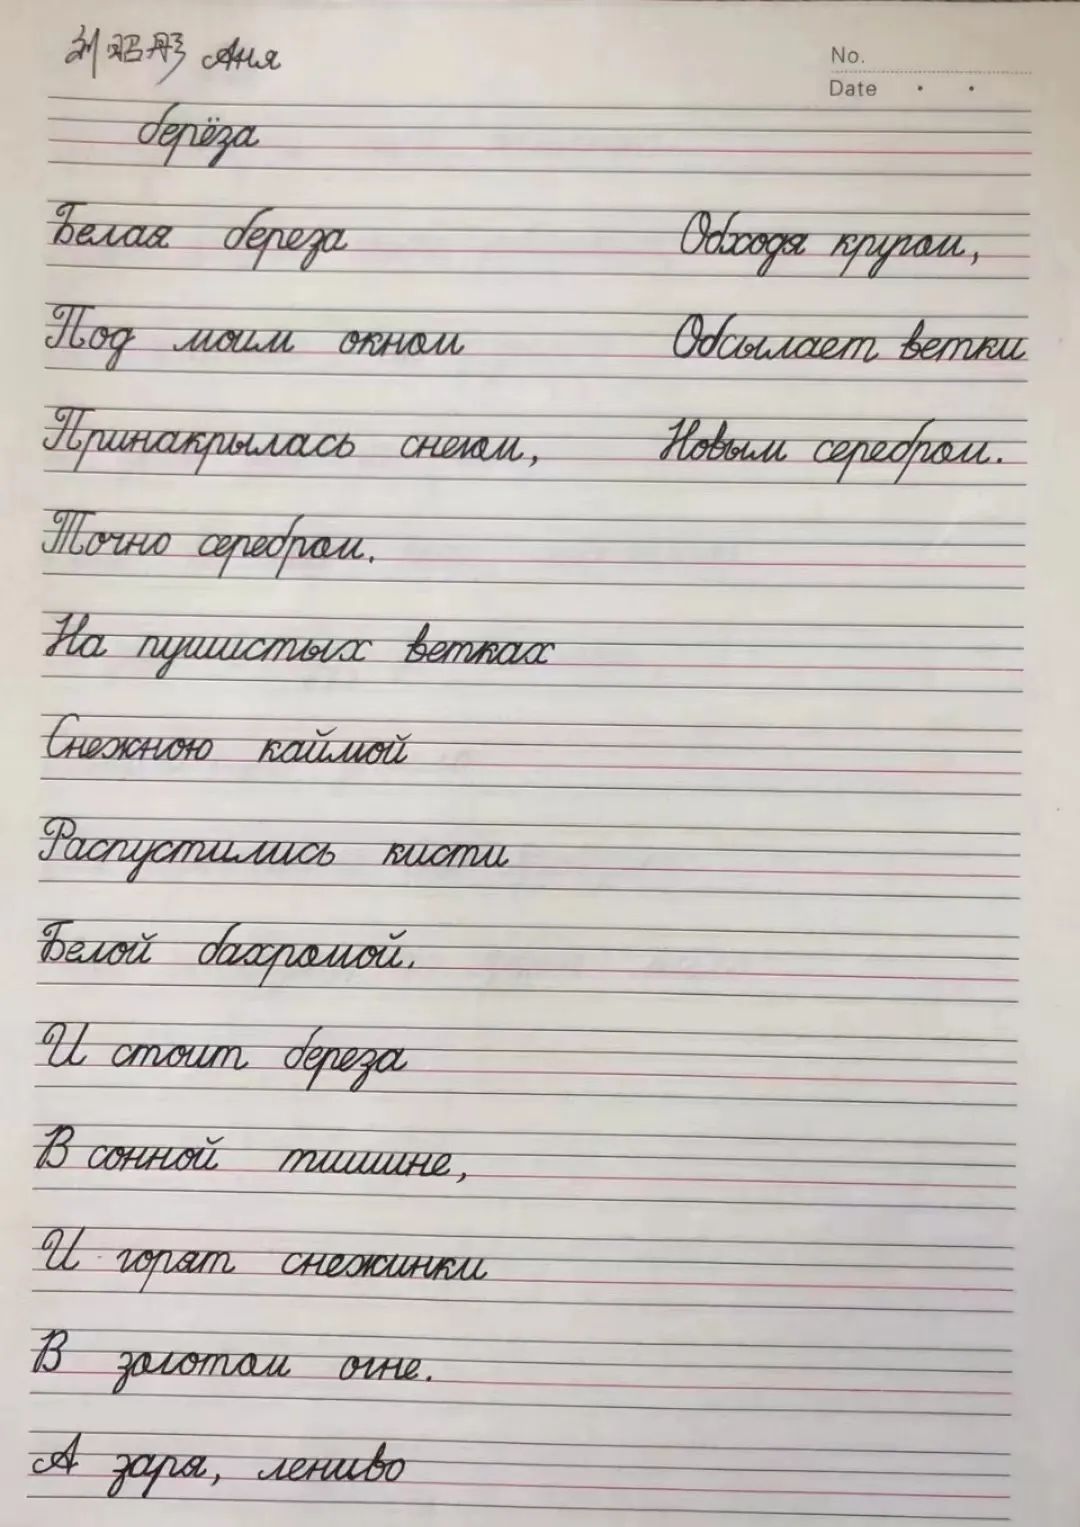 刘昭彤 Аня
No.
Date
берёза
Белая береза
Под моим окном
Принакрылась снегом,
Точно серебром.
На пушистых ветках
Снежною каймой
Распустились кисти
Белой бахромой.
И стоит береза
В сонной тишине,
И горят снежинки
В золотом огне.
А заря, лениво
Обходя кругом,
Обсылает ветки
Новым серебром.